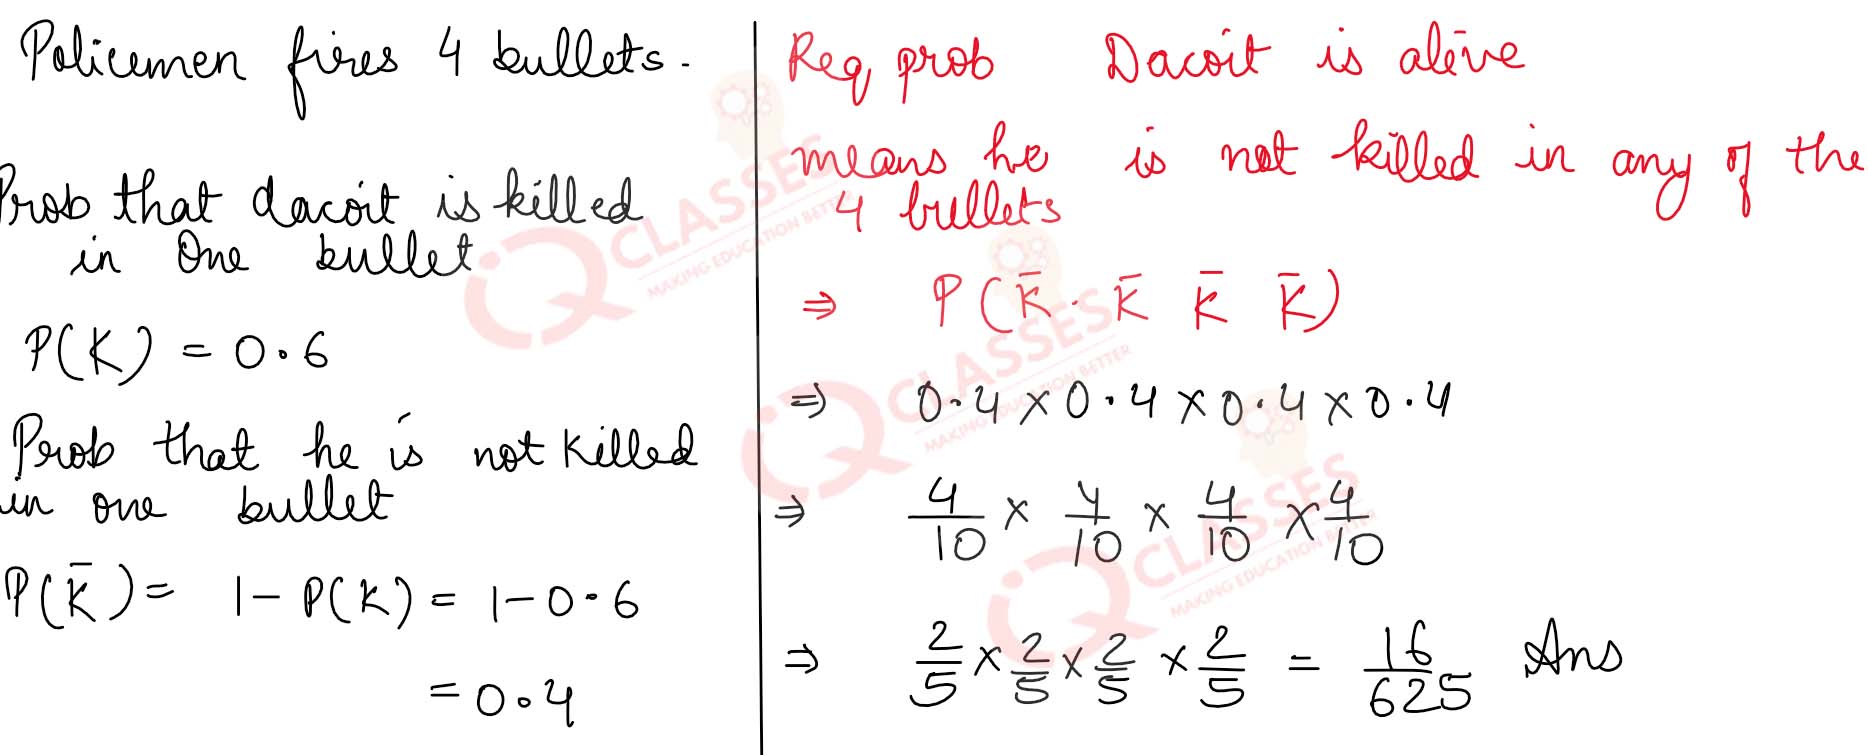 Policemen fires 4 bullets.
Prob that dacoit is killed
in One bullet
P(K) = 0.6
Prob that he is not killed
in one bullet
P(K̄) = 1 - P(K) = 1 - 0.6
= 0.4
Req prob Dacoit is alive
means he is not killed in any of the
4 bullets
⇒ P(K̄. K̄ K̄ K̄)
⇒ 0.4 × 0.4 × 0.4 × 0.4
⇒ 4/10 × 4/10 × 4/10 × 4/10
⇒ 2/5 × 2/5 × 2/5 × 2/5 = 16/625 Ans
iQ CLASSES
MAKING EDUCATION BETTER
iQ CLASSES
MAKING EDUCATION BETTER
iQ CLASSES
MAKING EDUCATION BETTER